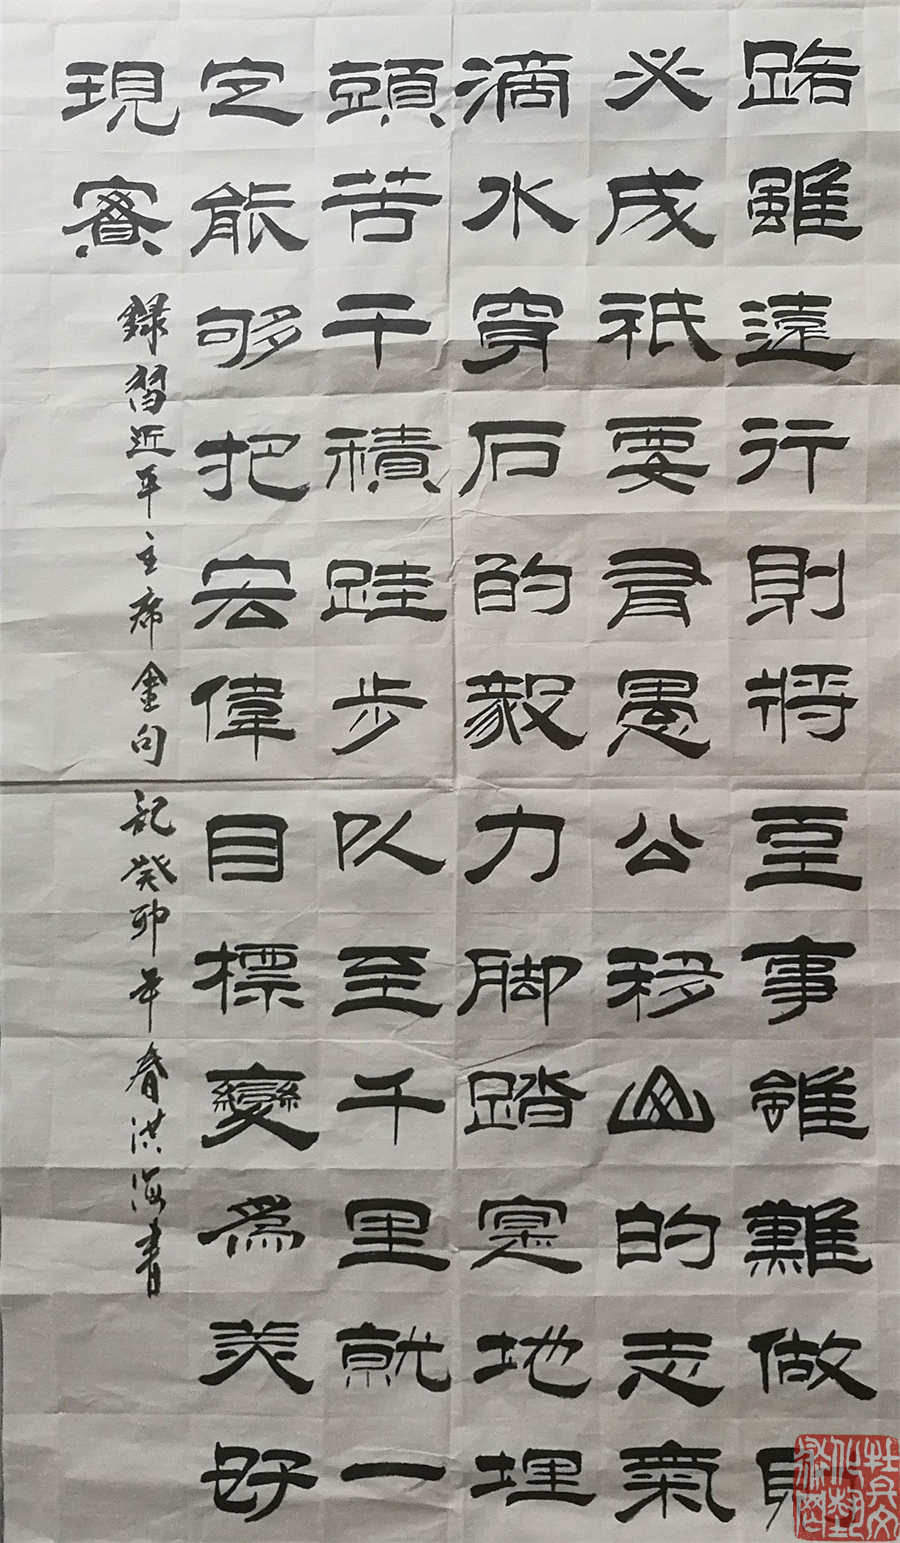 路雖遠行則將至事雖難做則
必成祇要有愚公移山的志氣
滴水穿石的毅力脚踏寔地埋
頭苦干積跬步以至千里就一
定能够把宏偉目標變爲美好
現實
録習近平主席金句 記癸卯年春洪海書